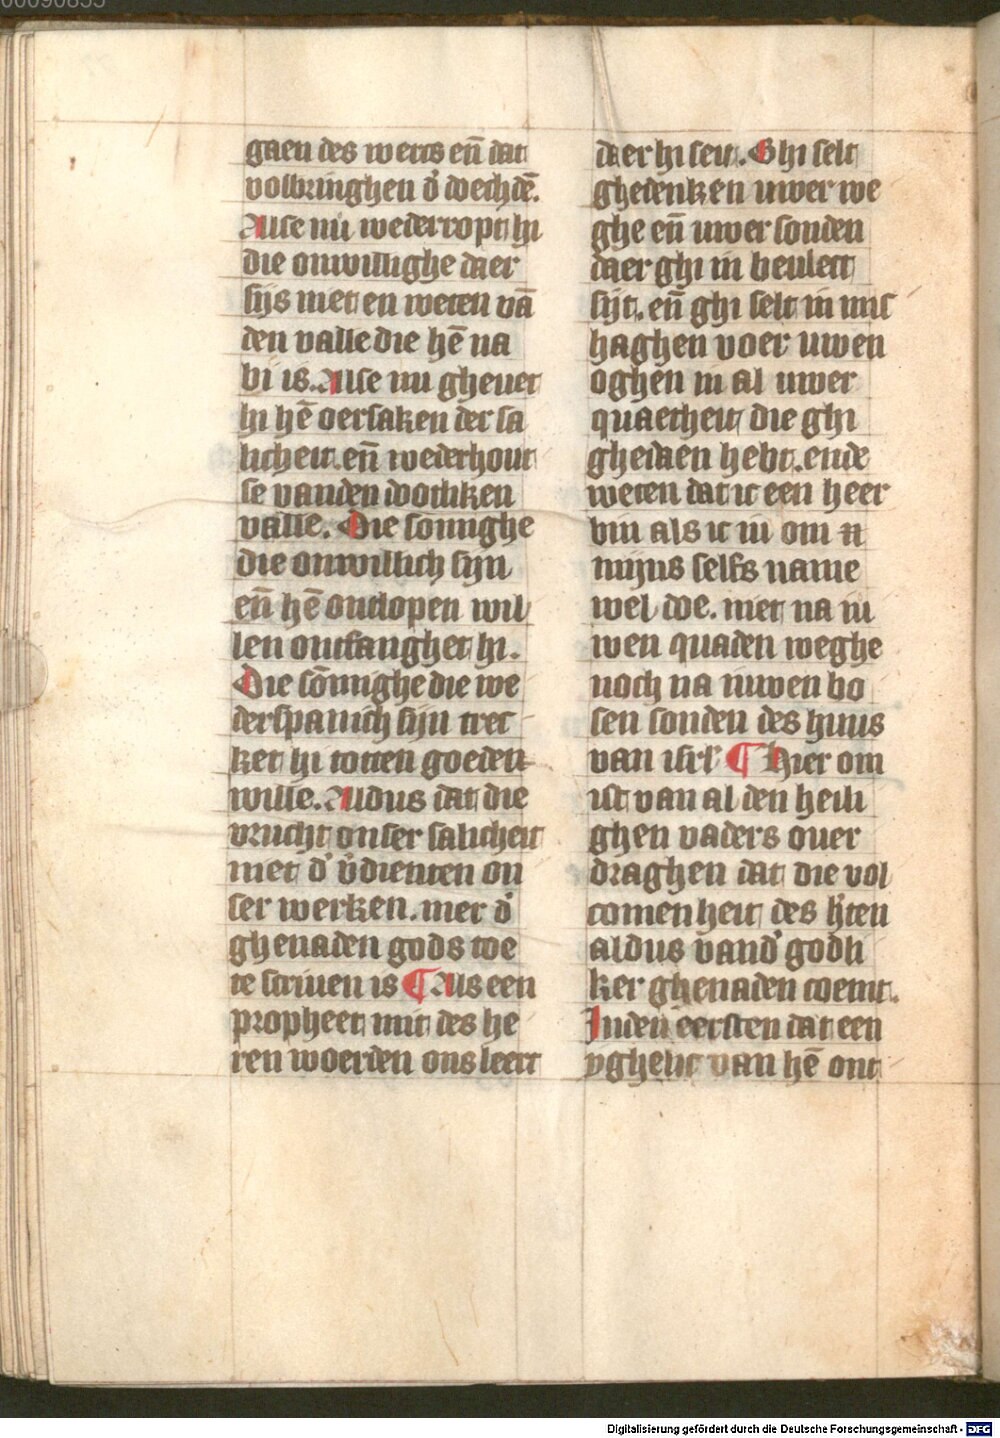 gaen des wercs eñ dat
volbringhen d' doechdẽ.
Alse nu wederropt hi
die onwillighe daer
sijs niet en weten vã
den valle die hẽ na
bi is. Alse nu gheuet
hi hẽ oersaken der sa
licheit. eñ wederhout
se vanden dootliken
valle. Die somighe
die onwillich sijn
eñ hẽ ontlopen wil
len ontfanghet hi.
Die sõmighe die we
derspanich sijn trec
ket hi totten goeden
wille. Aldus dat die
vrucht onser salicheit
niet d' v'dienten on
ser werken. mer d'
ghenaden gods toe
te scriuen is ¶ Als een
propheet mit des he
ren woerden ons leert
daer hi seit. Ghi selt
ghedenken uwer we
ghe eñ uwer sonden
daer ghi in beulect
sijt. eñ ghi selt in mis
haghen voer uwen
oghen in al uwer
quaetheit die ghi
ghedaen hebt. ende
weten dat ic een heer
bin als ic iu om
mijns selfs name
wel doe. niet na iu
wen quaden weghe
noch na iuwen bo
sen sonden des huus
van isrl' ¶ Hier om
ist van al den heili
ghen vaders ouer
draghen dat die vol
comenheit des h'ten
aldus vand' godli
ker ghenaden coemt.
Inden eersten dat een
yghelic van hẽ ont
00090855
Digitalisierung gefördert durch die Deutsche Forschungsgemeinschaft - DFG